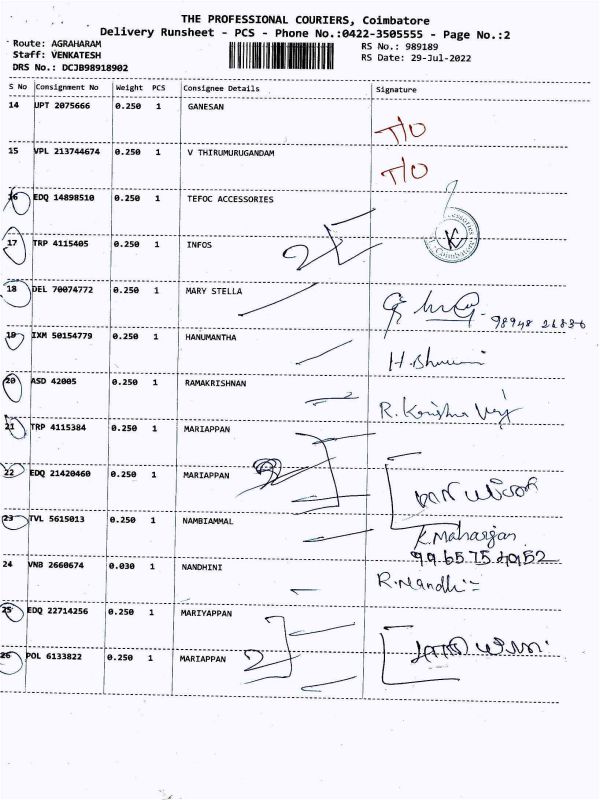 THE PROFESSIONAL COURIERS, Coimbatore
Delivery Runsheet - PCS - Phone No.:0422-3505555 - Page No.:2
Route: AGRAHARAM RS No.: 989189
Staff: VENKATESH RS Date: 29-Jul-2022
DRS No.: DCJB98918902
S No Consignment No Weight PCS Consignee Details Signature
14 UPT 2075666 0.250 1 GANESAN
T/O
15 VPL 213744674 0.250 1 V THIRUMURUGANDAM
T/O
16 EDQ 14898510 0.250 1 TEFOC ACCESSORIES
17 TRP 4115405 0.250 1 INFOS 2
18 DEL 70074772 0.250 1 MARY STELLA
19 IXM 50154779 0.250 1 HANUMANTHA
20 ASD 42005 0.250 1 RAMAKRISHNAN
21 TRP 4115384 0.250 1 MARIAPPAN
22 EDQ 21420460 0.250 1 MARIAPPAN
23 TVL 5615013 0.250 1 NAMBIAMMAL
K.Maharajan
24 VNB 2660674 0.030 1 NANDHINI
R.Nandhi
25 EDQ 22714256 0.250 1 MARIYAPPAN
26 POL 6133822 0.250 1 MARIAPPAN 2